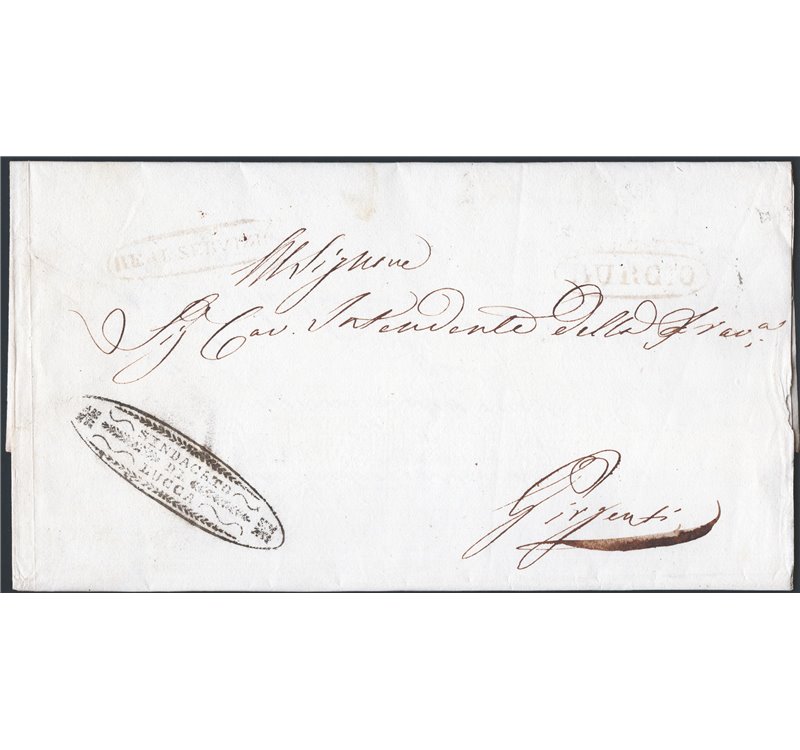 REAL SERVIZIO
Al Signore
Sig Cav. Intendente della Prova.
SINDACATO
DI
LUCCA
Girgenti